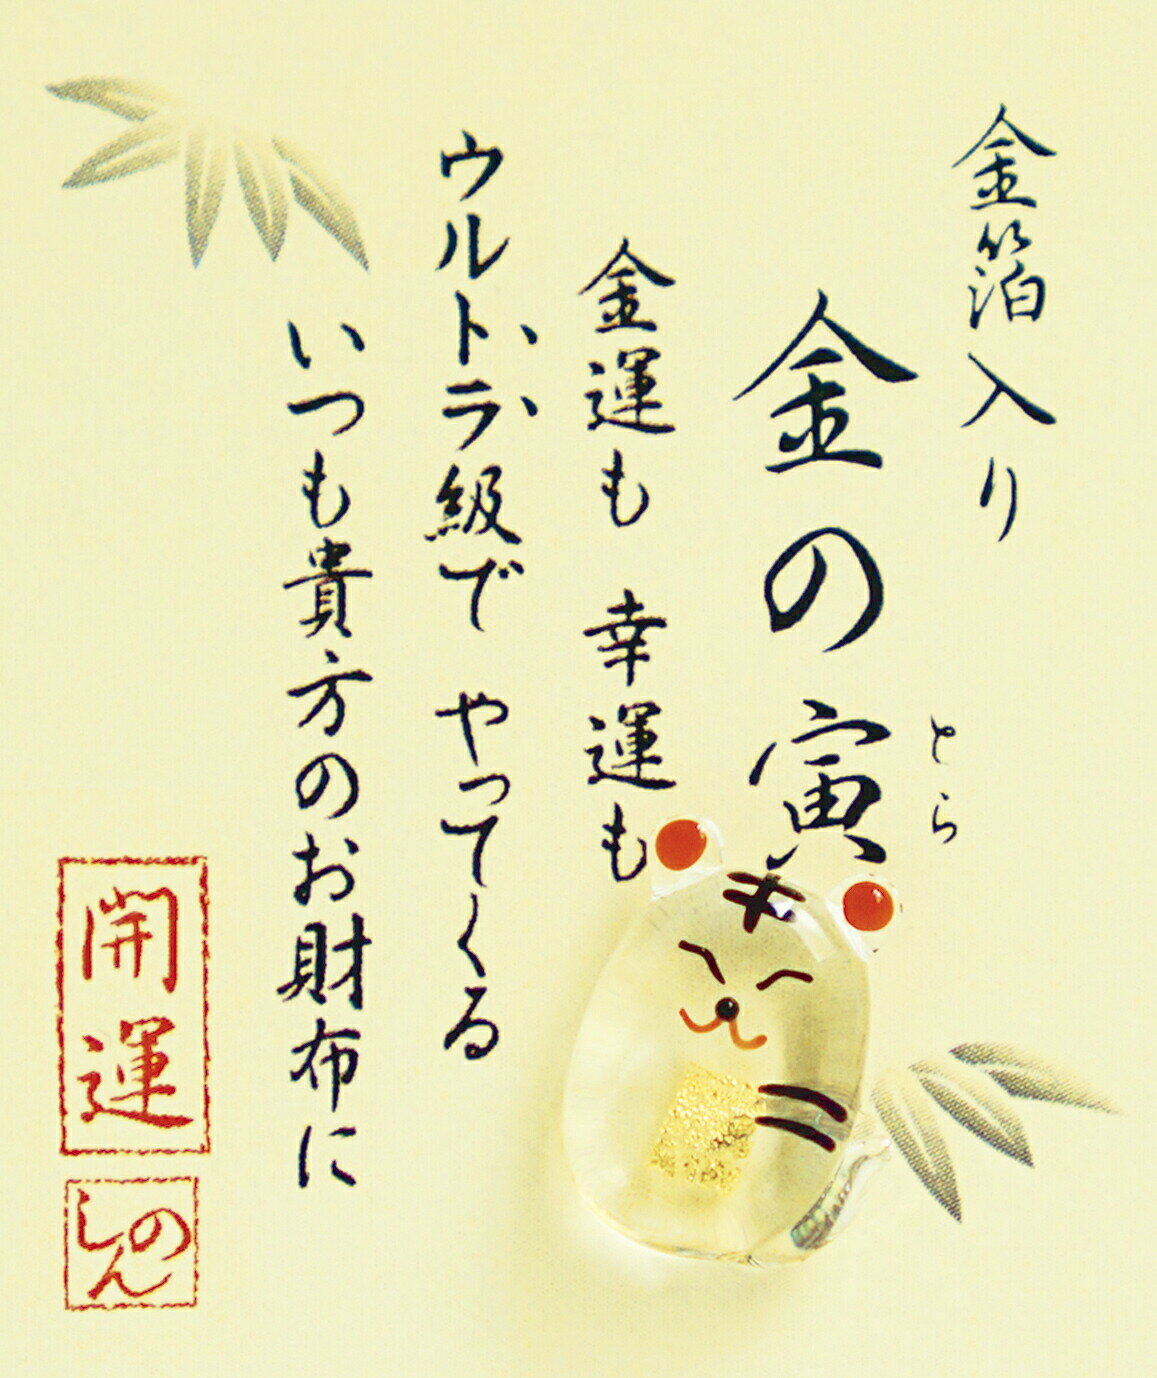 金箔入り
金の寅
とら
金運も　幸運も
ウルトラ級で　やってくる
いつも貴方のお財布に
開運